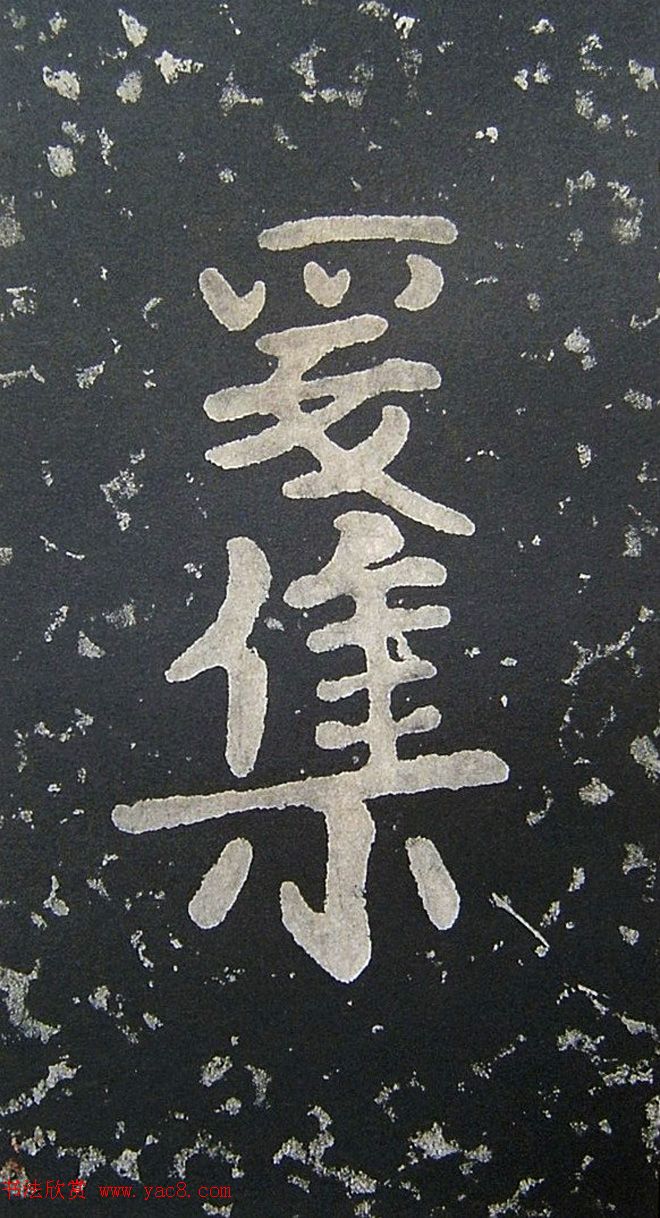 爰集
书法欣赏 www.yac8.com